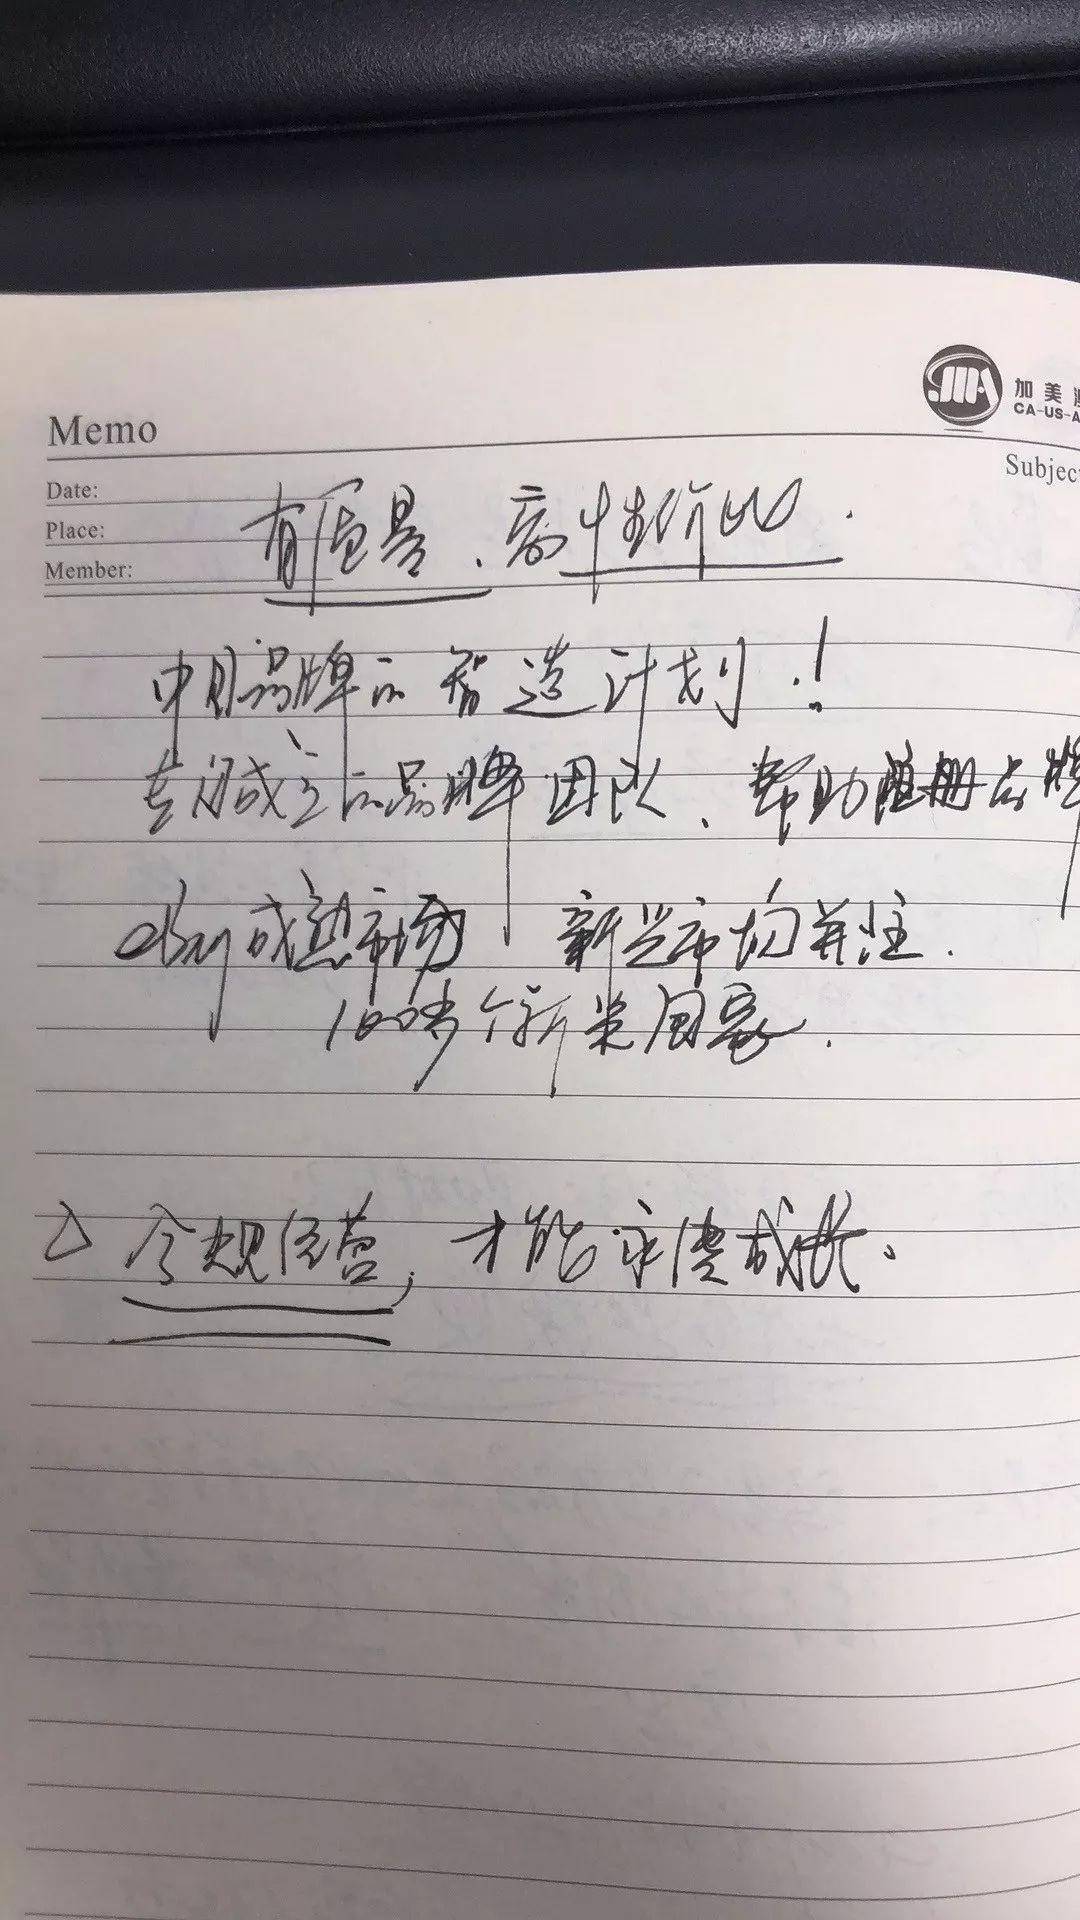 加美
CA-US-A
Memo
Subjec
Date:
Place:
Member:
有质量、高性价比.
中国品牌的智造计划!
专门成立的品牌团队、帮助注册品牌
ebay成熟市场 新兴市场并注.
100多个新兴国家.
合规经营, 才能永续成长.